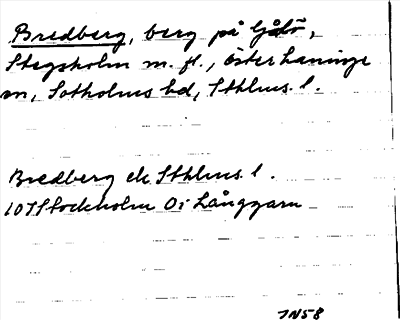 Bredberg, berg på Gålö,
Stegsholm m. fl., Österhaninge
sn, Sotholms hd, Sthlms. l.
Bredberg ek Sthlms. l.
10I Stockholm Oi Långgarn
JN58